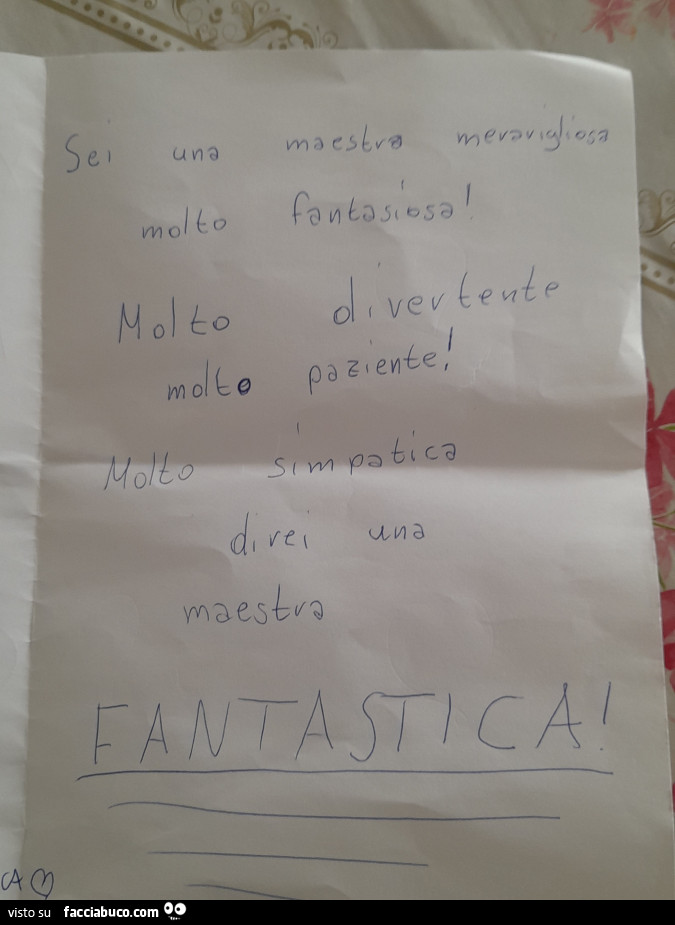 Sei una maestra meravigliosa
molto fantasiosa!
Molto divertente
molto paziente!
Molto simpatica
direi una
maestra
FANTASTICA!
CA
visto su facciabuco.com